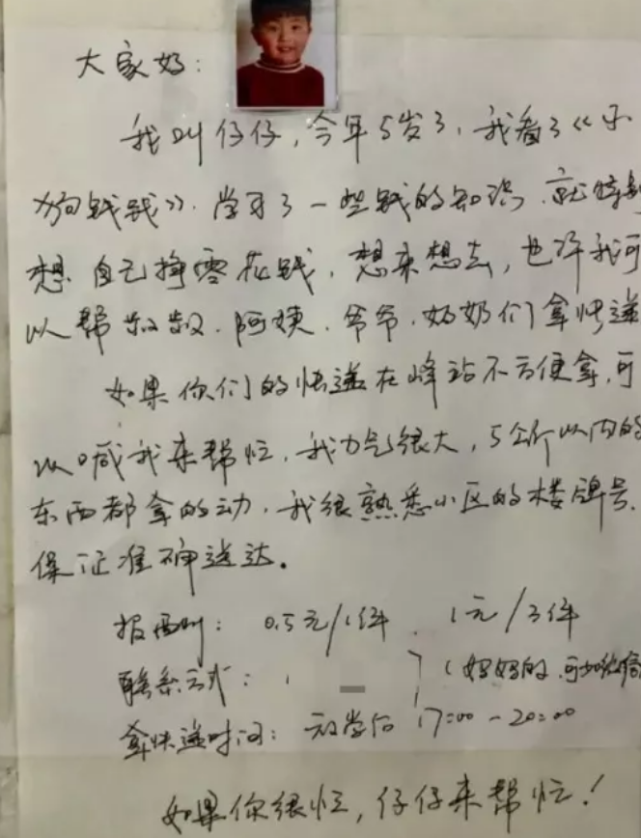 大家好:
我叫仔仔,今年5岁了,我看了《小
狗钱钱》.学习了一些钱的知识.就特别
想自己挣零花钱,想来想去,也许我可
以帮叔叔.阿姨.爷爷.奶奶们拿快递
如果你们的快递在峰站不方便拿,可
以喊我来帮忙,我力气很大,5公斤以内的
东西都拿的动.我很熟悉小区的楼牌号.
保证准确送达。
报酬: 0.5元/1件. 1元/3件
联系方式: (妈妈的.可加微信
拿快递时间: 放学后 17:00-20:00
如果你很忙,仔仔来帮忙!